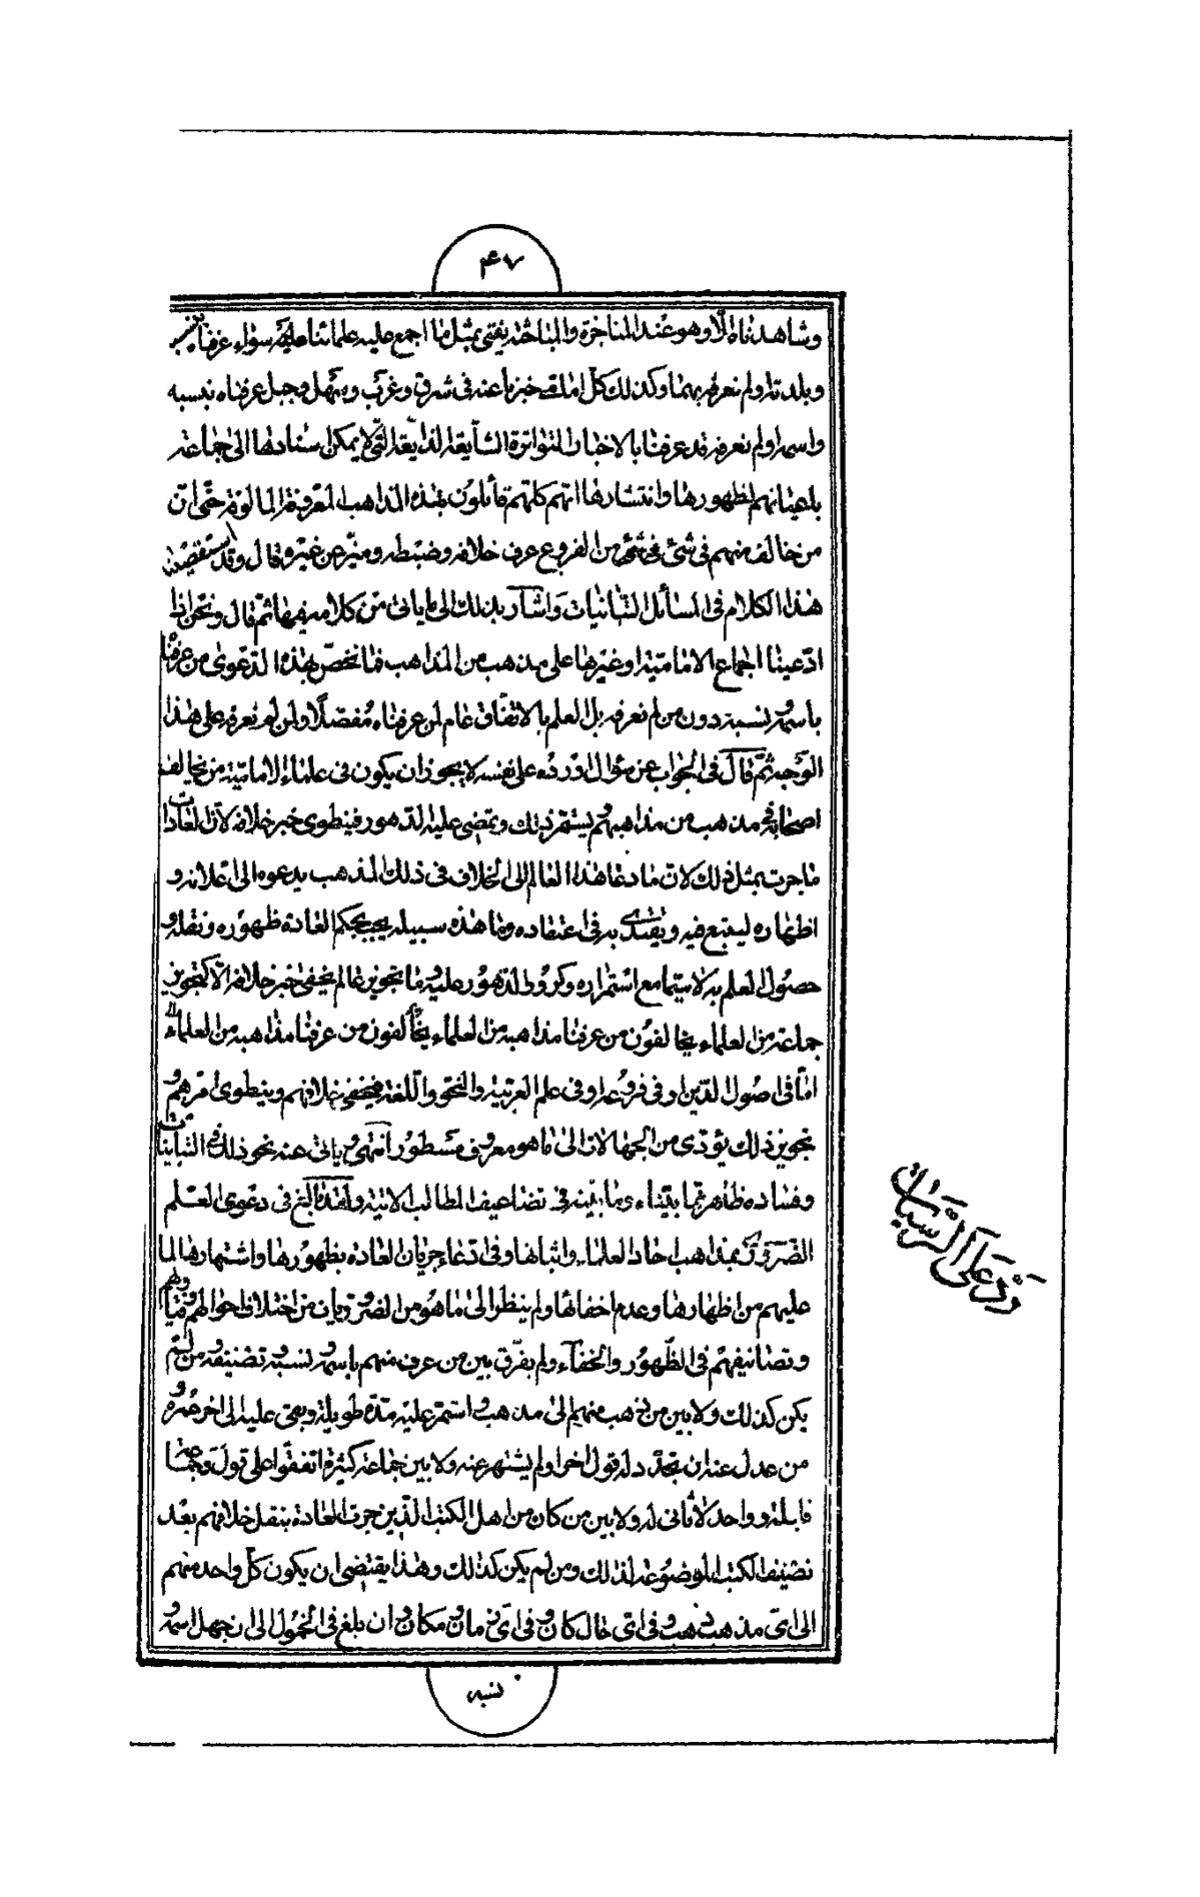 ۴۷
وشاهدناه الا وهو عند المناظرة والمباحثة يفتى بمثل ما اجمع عليه علمائنا عليه سواء عرفناه بنسبه
وبلدته او لم نعرفه بهما وكذلك كل امامى خبرنا عنه فى شرق وغرب وسهل وجبل عرفناه بنسبه
واسمه او لم نعرفه قد عرفنا بالاخبار المتواترة الشايعة الذايعة التى لا يمكن اسنادها الى جماعة
باعيانهم لظهورها وانتشارها انهم كلهم قائلون بهذه المذاهب المعروفة المالوفة حتى ان
من خالف منهم فى شئ من الفروع عرف خلافه وضبطه وميز عن غيره وقال وقد استقصينا
هذا الكلام فى المسائل التبانيات واشار بذلك الى ما ياتى من كلامه فيها ثم قال ونحن اذا
ادعينا اجماع الامامية او غيرها على مذهب من المذاهب فما نخص بهذه الدعوى من عرفنا
باسمه ونسبه دون من لم نعرفه بل العلم بالاتفاق عام لمن عرفناه مفصلا ولمن لم نعرفه على هذا
الوجه ثم قال فى الجواب عن سؤال اورده على نفسه لا يجوز ان يكون فى علماء الامامية من يخالف
اصحابه فى مذهب من مذاهبهم ويستمر ذلك وتمضى عليه الدهور فينطوى خبر خلافه لان العادات
ما جرت بمثل ذلك لان ما دعا هذا العالم الى الخلاف فى ذلك المذهب يدعوه الى اعلانه و
اظهاره ليتبع فيه ويقتدى به فى اعتقاده وما هذه سبيله يجب بحكم العادة ظهوره ونقله و
حصول العلم به لا سيما مع استمراره وكرور الدهور عليه وما تجويز عالم يخفى خبر خلافه الا كتجويز
جماعة من العلماء يخالفون من عرفنا مذاهبه من العلماء يخالفون من عرفنا مذاهبه من العلماء
اما فى اصول الدين او فى فروعه او فى علم العربية والنحو واللغة فيخفى خلافهم وينطوى امرهم و
تجويز ذلك يؤدى من الجهالات الى ما هو معروف مسطور انتهى وياتى عنه نحو ذلك فى التبانيات
وفساده ظاهر مما بيناه وما نبينه فى تضاعيف المطالب الاتية ولقد بالغ فى دعوى العلم
الضرورى بمذاهب احاد العلماء واثباتها وفى ادعاء جريان العادة بظهورها واشتهارها لما
عليهم من اظهارها وعدم اخفائها ولم ينظر الى ما هو من الضروريات من اختلاف احوالهم وفتاويهم
وتصانيفهم فى الظهور والخفاء ولم يفرق بين من عرف منهم باسمه ونسبه وتصنيفه ومن لم
يكن كذلك ولا بين من ذهب منهم الى مذهب واستمر عليه مدة طويلة وبقى عليه الى اخر عمره و
من عدل عنه ان تجدد له قول اخر او لم يشتهر عنه ولا بين جماعة كثيرة اتفقوا على قول وجماعة
قابلة وواحد لا ثانى له ولا بين من كان من اهل الكتب الذين جرت العادة بنقل خلافهم بعد
تصنيف الكتب الموضوعة لذلك ومن لم يكن كذلك وهذا يقتضى ان يكون كل واحد منهم
الى اى مذهب ذهب وفى اى حال كان وفى اى زمان ومكان وان بلغ فى الخمول الى ان جهل اسمه و
نسبه
رد على الترسيات